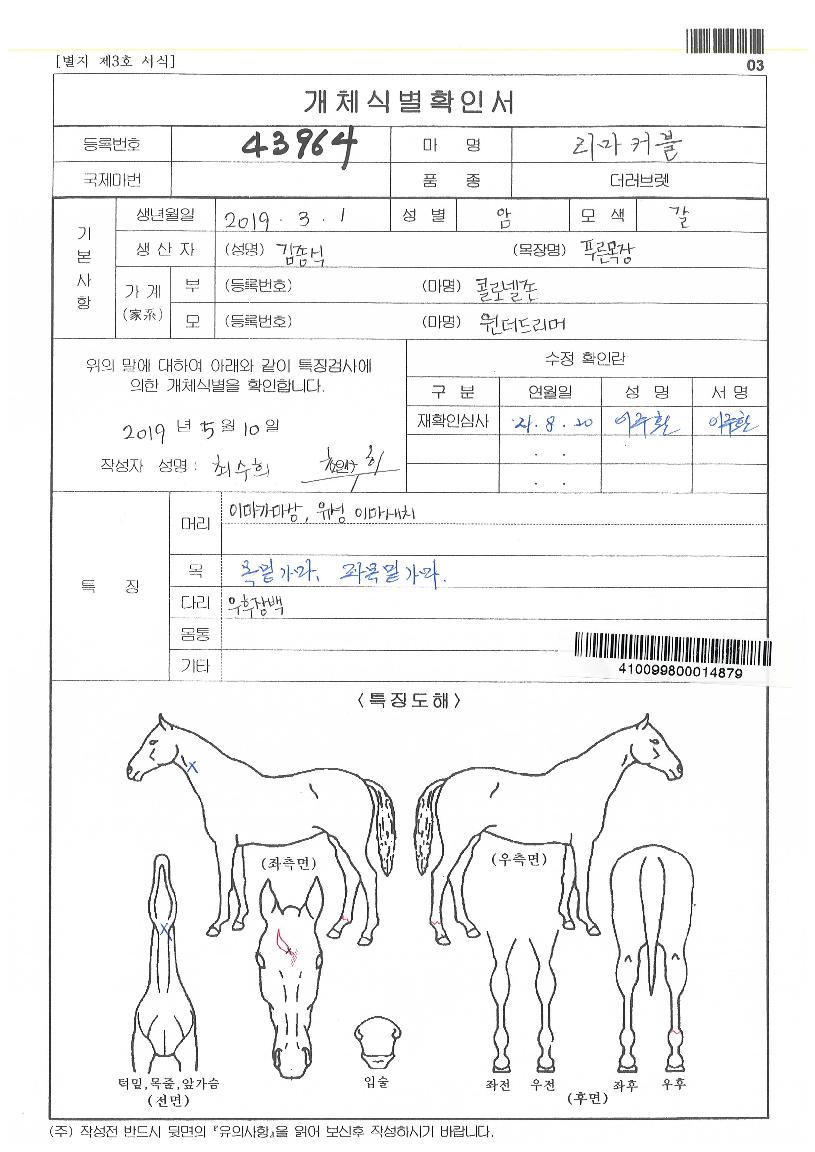 [별지 제3호 서식]
03
개체식별확인서
등록번호 43964 마 명 리마커블
국제마번 품 종 더러브렛
기본사항
생년월일 2019 . 3 . 1 성 별 암 모 색 갈
생 산 자 (성명) 김종석 (목장명) 푸른목장
가 계 (家系) 부 (등록번호) (마명) 콜로넬존
모 (등록번호) (마명) 원더드리머
위의 말에 대하여 아래와 같이 특징검사에
의한 개체식별을 확인합니다.
2019 년 5 월 10 일
작성자 성명 : 최수희
수정 확인란
구 분 연월일 성 명 서 명
재확인심사 21. 8. 20 이주환 이주환
. .
. .
특 징
머리 이마가마상, 유성 이마새치
목 목밑가마, 좌목밑가마.
다리 우후장백
몸통
기타
410099800014879
<특징도해>
(좌측면) (우측면)
턱밑,목줄,앞가슴
(전면)
입술
좌전 우전 좌후 우후
(후면)
(주) 작성전 반드시 뒷면의 『유의사항』을 읽어 보신후 작성하시기 바랍니다.